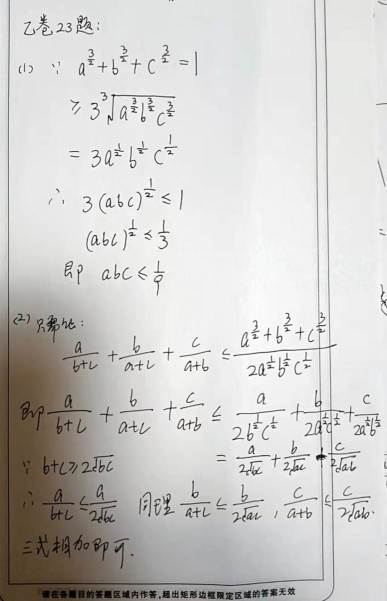 乙卷23题:
(1) ∵ a^{3/2}+b^{3/2}+c^{3/2}=1
≥ 3∛(a^{3/2}b^{3/2}c^{3/2})
= 3a^{1/2}b^{1/2}c^{1/2}
∴ 3(abc)^{1/2} ≤ 1
(abc)^{1/2} ≤ 1/3
即 abc ≤ 1/9
(2) 只需证:
a/(b+c) + b/(a+c) + c/(a+b) ≤ (a^{3/2}+b^{3/2}+c^{3/2})/(2a^{1/2}b^{1/2}c^{1/2})
即 a/(b+c) + b/(a+c) + c/(a+b) ≤ a/(2b^{1/2}c^{1/2}) + b/(2a^{1/2}c^{1/2}) + c/(2a^{1/2}b^{1/2})
= a/(2√bc) + b/(2√ac) + c/(2√ab)
∵ b+c ≥ 2√bc
∴ a/(b+c) ≤ a/(2√bc) 同理 b/(a+c) ≤ b/(2√ac) , c/(a+b) ≤ c/(2√ab).
三式相加即可.
请在各题目的答题区域内作答,超出矩形边框限定区域的答案无效